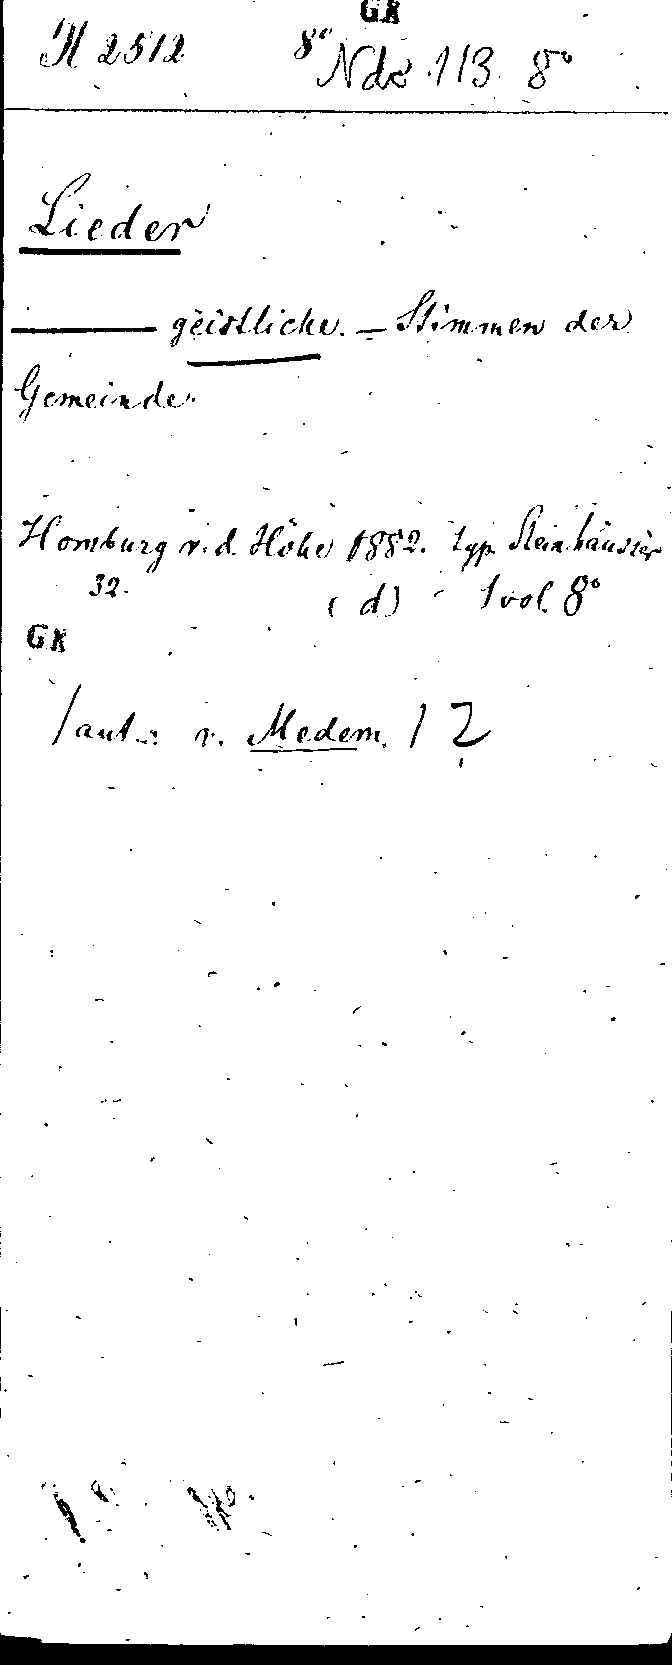 GK
N 2512 8° Nds 113 8°
Lieder
—— geistliche. — Stimmen der
Gemeinde.
Homburg v. d. Höhe 1882. typ. Steinhäusser
32. (d) - 1 vol. 8°
GK
/aut.: v. Medem. / 2